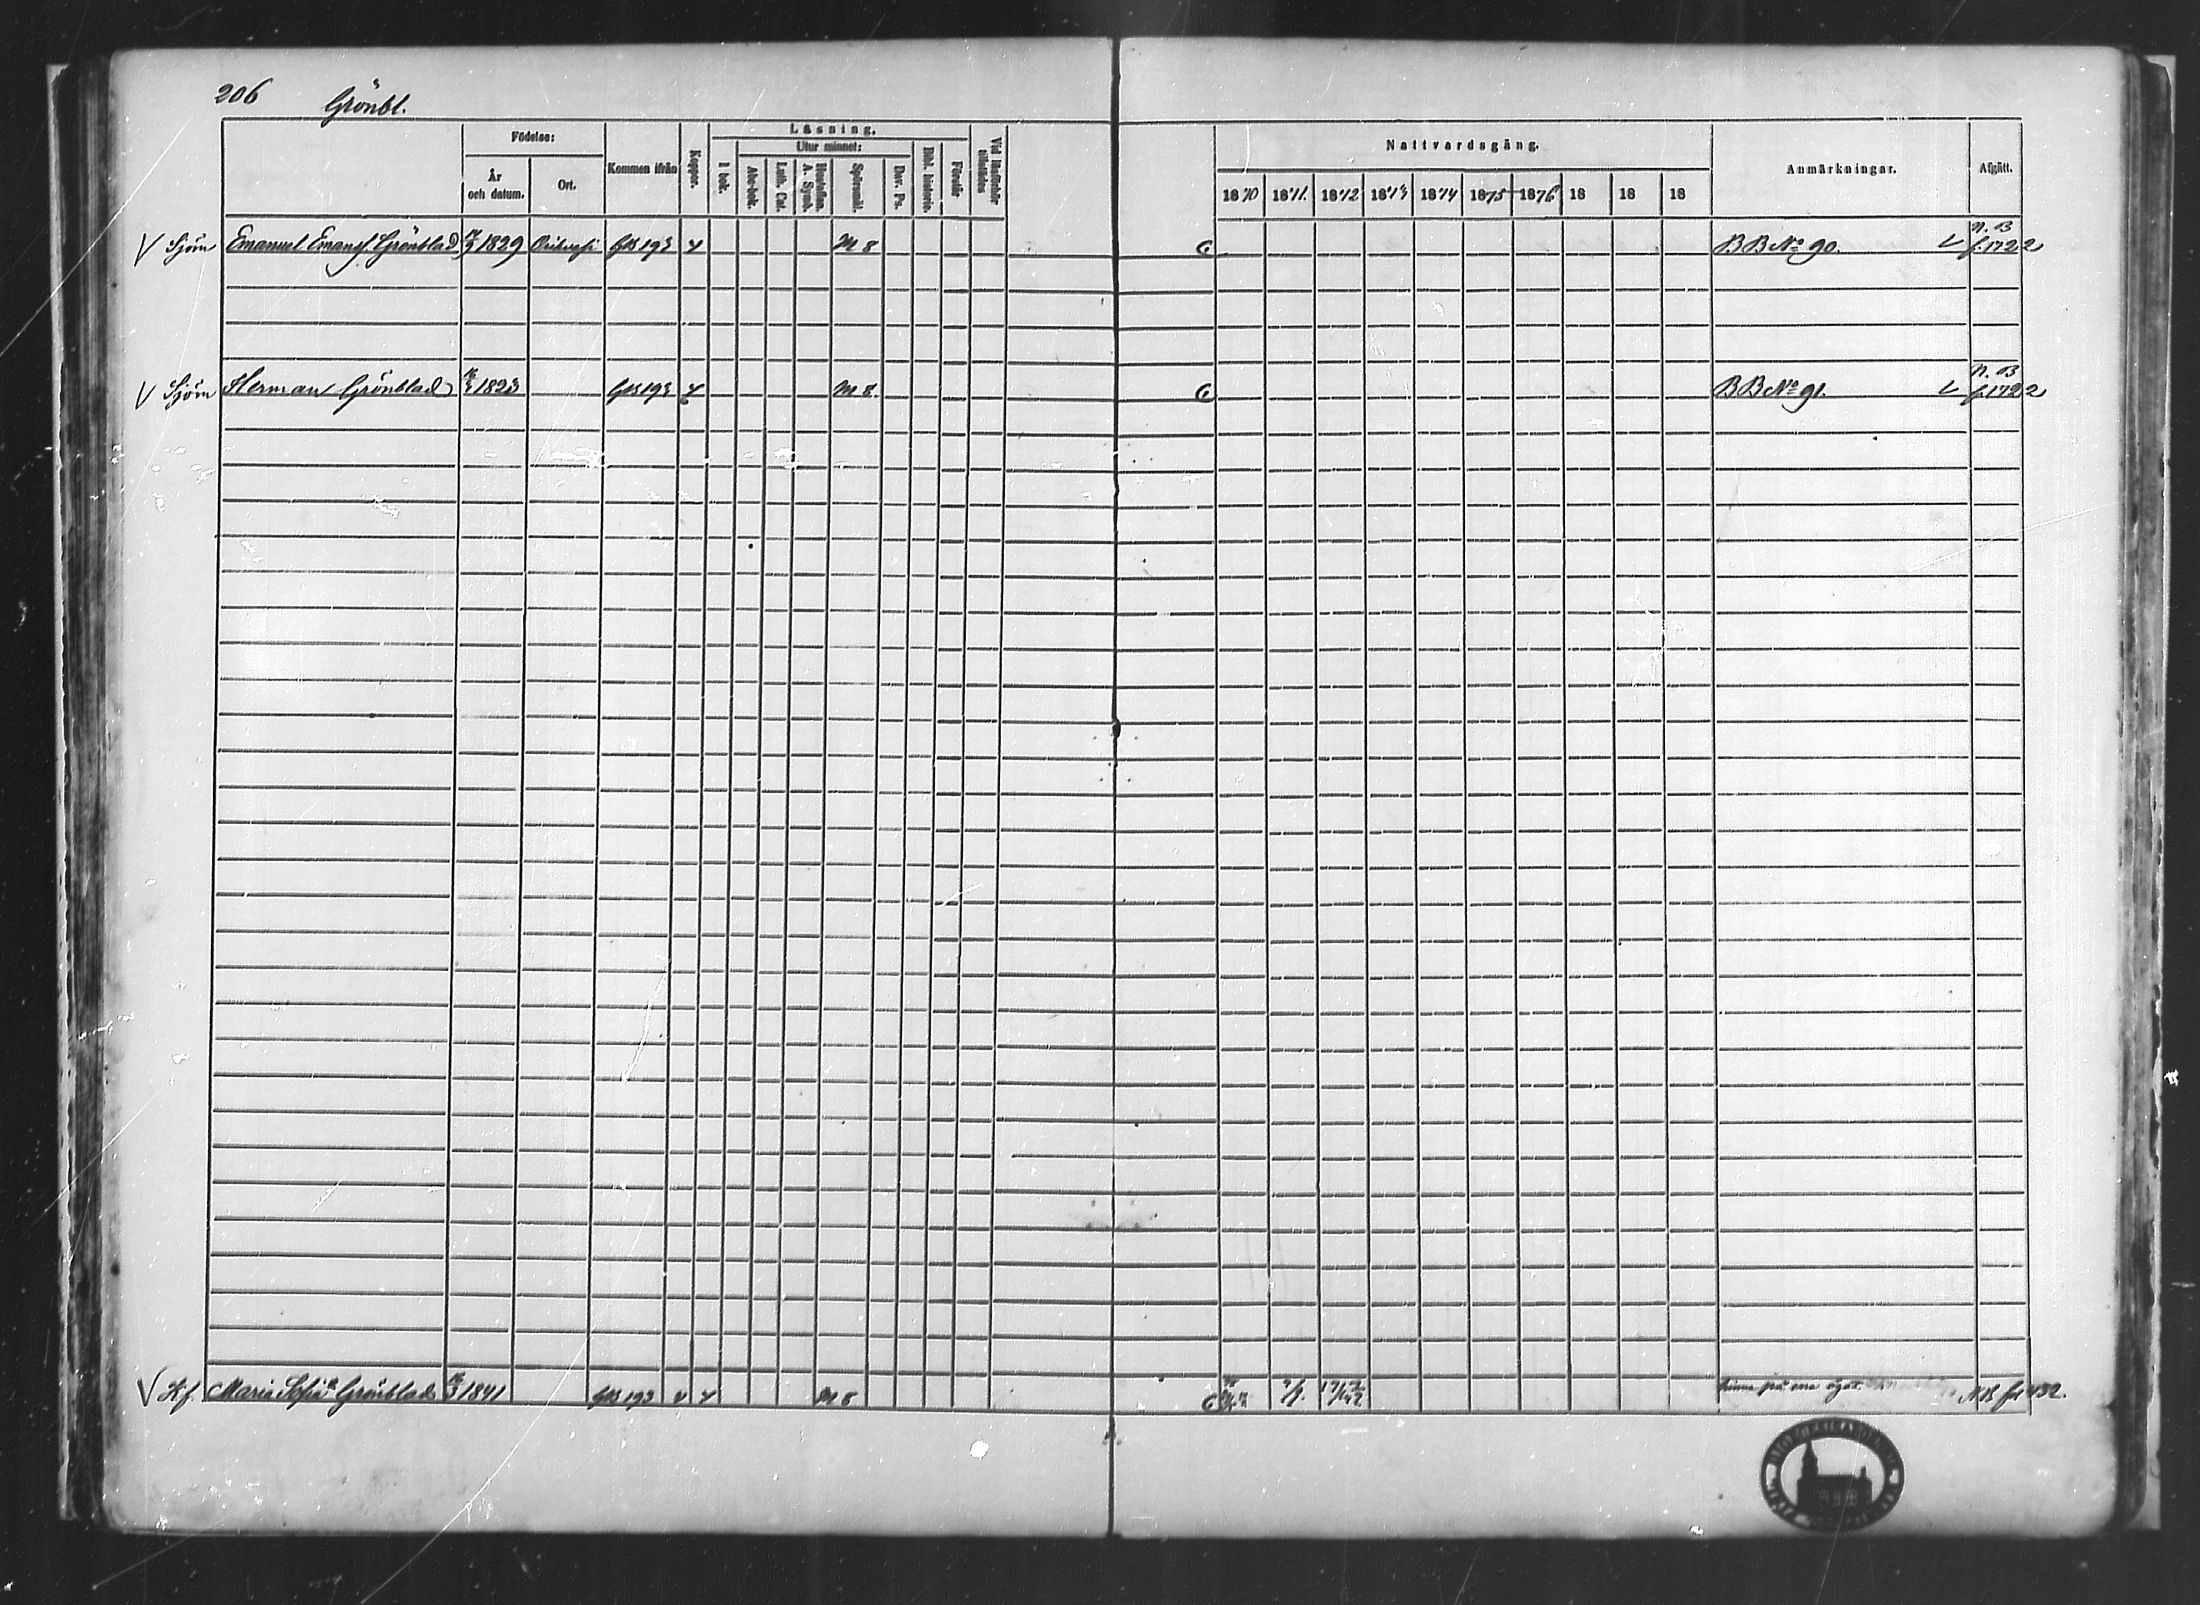 206 Grönbl.
Födelse: År och datum. Ort. Kommen ifrån Koppor. Läsning. I bok. Utur minnet: Abc-bok. Luth. Cat. Hustaflan. A. Symb. Spörsmål. Dav. Ps. Bibl. historie. Förstår Vid läsförhör tillstädes Nattvardsgång. 1870 1871. 1872 1873 1874 1875 1876 18 18 18 Anmärkningar. Afgått.
V Sjöm Emanuel Emanf. Grönblad 1829 GB 193 M 8 C BB No 90. N. B f. 1722
V Sjöm Herman Grönblad 1823 GB 193 M 8 C BB No 91. N. B f. 1722
V Kf. Maria Sofia Grönblad 1841 GB 193 v M 8 C på ena ögat. NB